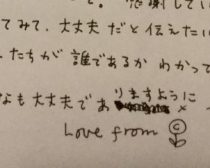 て。感謝してい
てみて、大丈夫だと伝えたい
、たちが誰であるかわかって
なも大丈夫でありますように
Love from